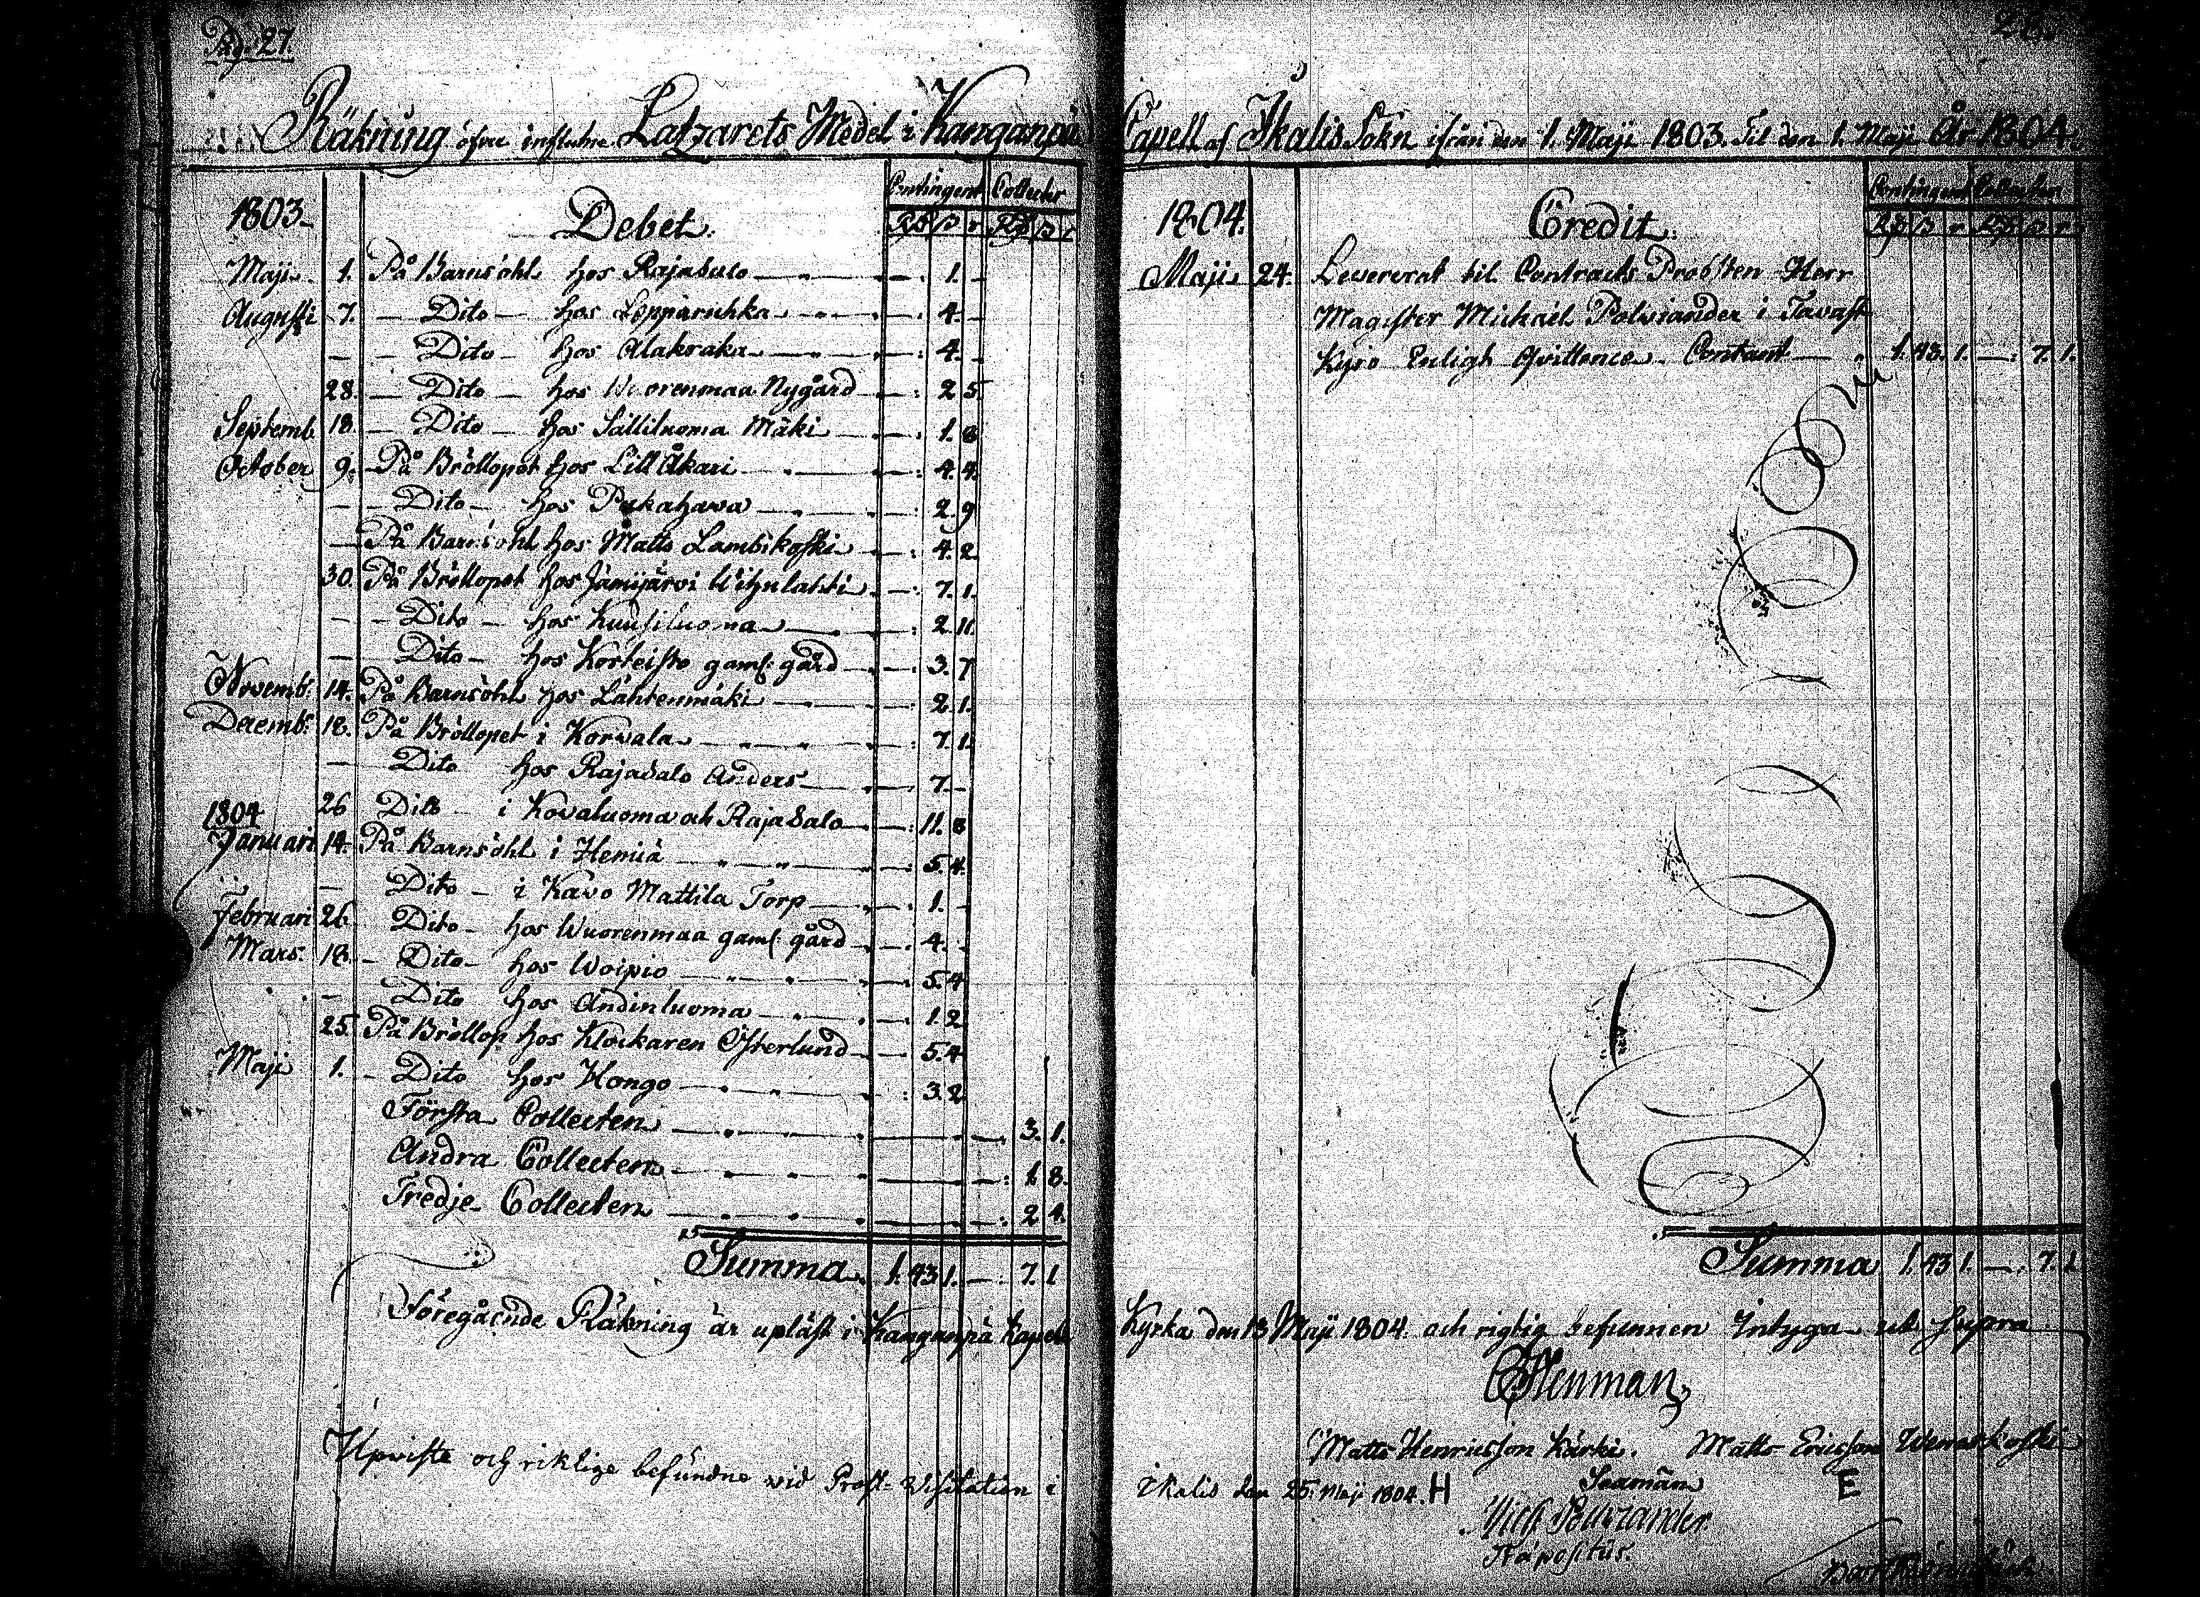 Pag. 27.
Räkning öfver influtne Latzarets Medel i Kangangpä Capell af Ikalis Sokn ifrån den 1. Maji 1803. Til den 1. Maji År 1804.
Contingent Collecter
1803. Debet. Rd ß r Rd ß r
Maji 1. På Barnsöhl hos Rajasalo — : 1. —
Augusti 7. — Dito — hos Leppäruhka — : 4. —
— — Dito — hos Alakraka — : 4. —
28. — Dito — hos Wuorenmaa Nygård — : 2 5.
Septemb. 18. — Dito — hos Salliluoma Mäki — : 1. 8
October 9. På Bröllopet hos Lill Åkari — : 4. 4.
— — Dito — hos Pukahava — : 2. 9
— På Barnsöhl hos Matts Lambikoski — : 4. 2.
30. På Bröllopet hos Jämijärvi Wihulahti — : 7. 1.
— — Dito — hos Kuusiluoma — : 2 11.
— Dito — hos Korteisto gaml: gård — : 3. 7
Novemb: 14. På Barnsöhl hos Lähtenmäki — : 2 1.
Decemb: 18. På Bröllopet i Korvala — : 7. 1.
— Dito hos Rajasalo Anders — : 7. —
26 Dito — i Kovaluoma och Rajasalo — : 11. 8
1804
Januari 14. På Barnsöhl i Hemiä — : 5. 4.
— Dito — i Kavo Mattila Torp — : 1. —
Februari 26 Dito — hos Wuorenmaa gaml: gård — : 4. —
Mars. 18. — Dito — hos Woipio — : 5. 4
— Dito hos Andinluoma — : 1. 2
25. På Bröllop hos Klockaren Österlund — 5. 4
Maji 1. — Dito hos Hongo — : 3. 2
Första Collecten — : 3. 1.
Andra Collecten — : 1 8.
Tredje Collecten — : 2 4.
Summa 1. 43 1. — : 7. 1
Föregående Räkning är upläst i Kangangpä Kapels
Upviste och riktige befundne vid Prost-Visitation i
Contingent Collecter
1804. Credit. Rd ß r Rd ß r
Maji 24. Levererat til Contracts Probsten Herr
Magister Michaël Polviander i Tavast
Kyro Enligh Qvittence Contant — 1. 43. 1. — : 7. 1.
Summa 1. 43 1. — : 7. 1.
Kyrka den 13 Maji 1804. och rigtig befunnen Intygar ut supra
Stenman
Matts Henricsson Kärki. Matts Ericsson Wenäskoski
Sexmän
Ikalis den 25. Maji 1804. H E
Præpositus.